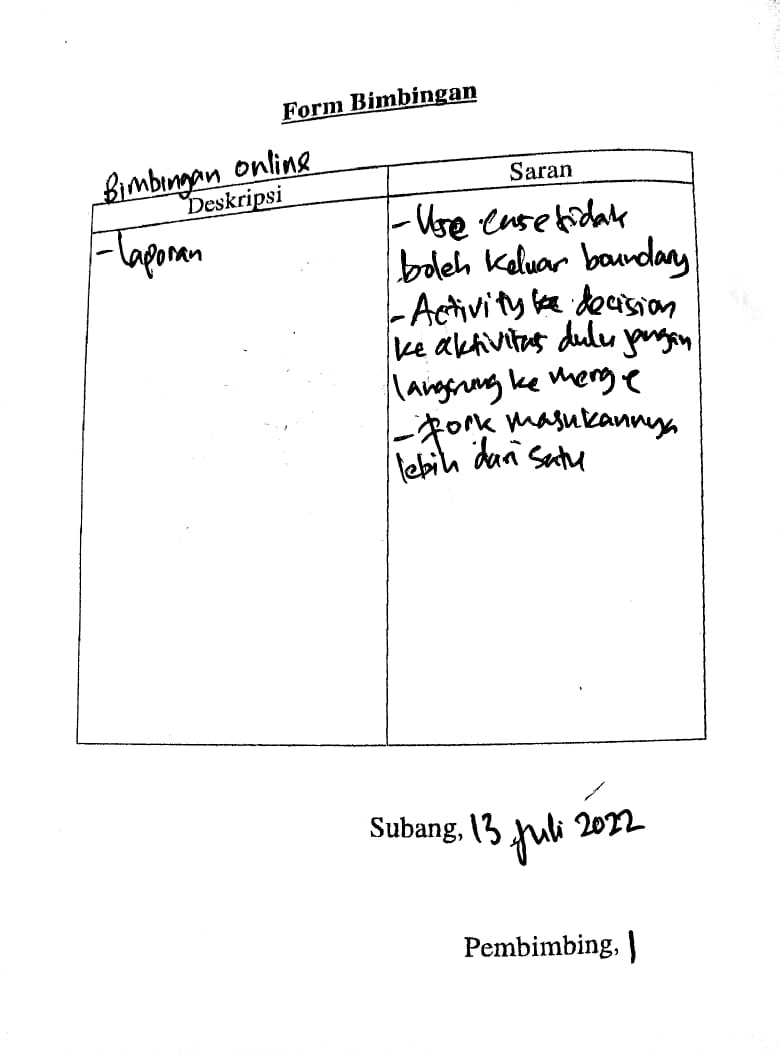 Form Bimbingan
Bimbingan online
Deskripsi
Saran
- Laporan
- Use case tidak
boleh keluar boundary
- Activity ke decision
ke aktivitas dulu jangan
langsung ke merge
- fork masukannya
lebih dari satu
Subang, 13 Juli 2022
Pembimbing, 1